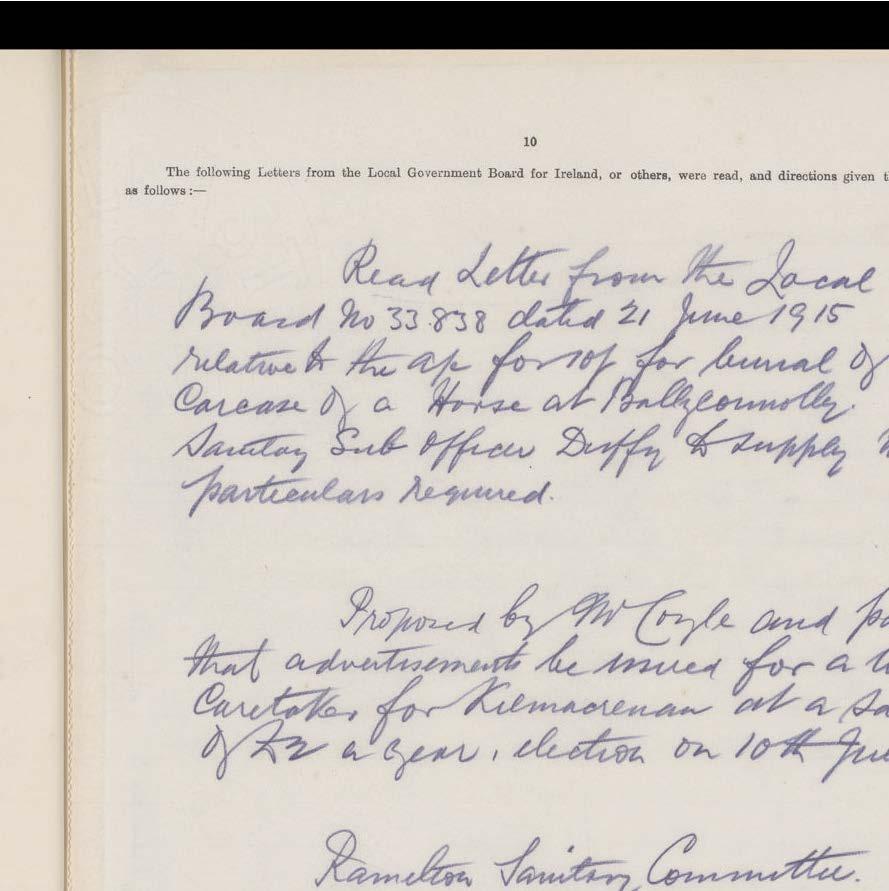 10
The following Letters from the Local Government Board for Ireland, or others, were read, and directions given
as follows :—
Read Letter from the Local
Board No 33.838 dated 21 June 1915
relative to the for 10/- for burial of
Carcase of a Horse at Ballyconnolly.
Sanitary Sub Officer Duffy to supply
particulars required.
Proposed by Mr Coyle and
that advertisements be issued for a
Caretaker for Kilmacrenan at a
of £2 a year, election on 10th
Ramelton Sanitary Committee.